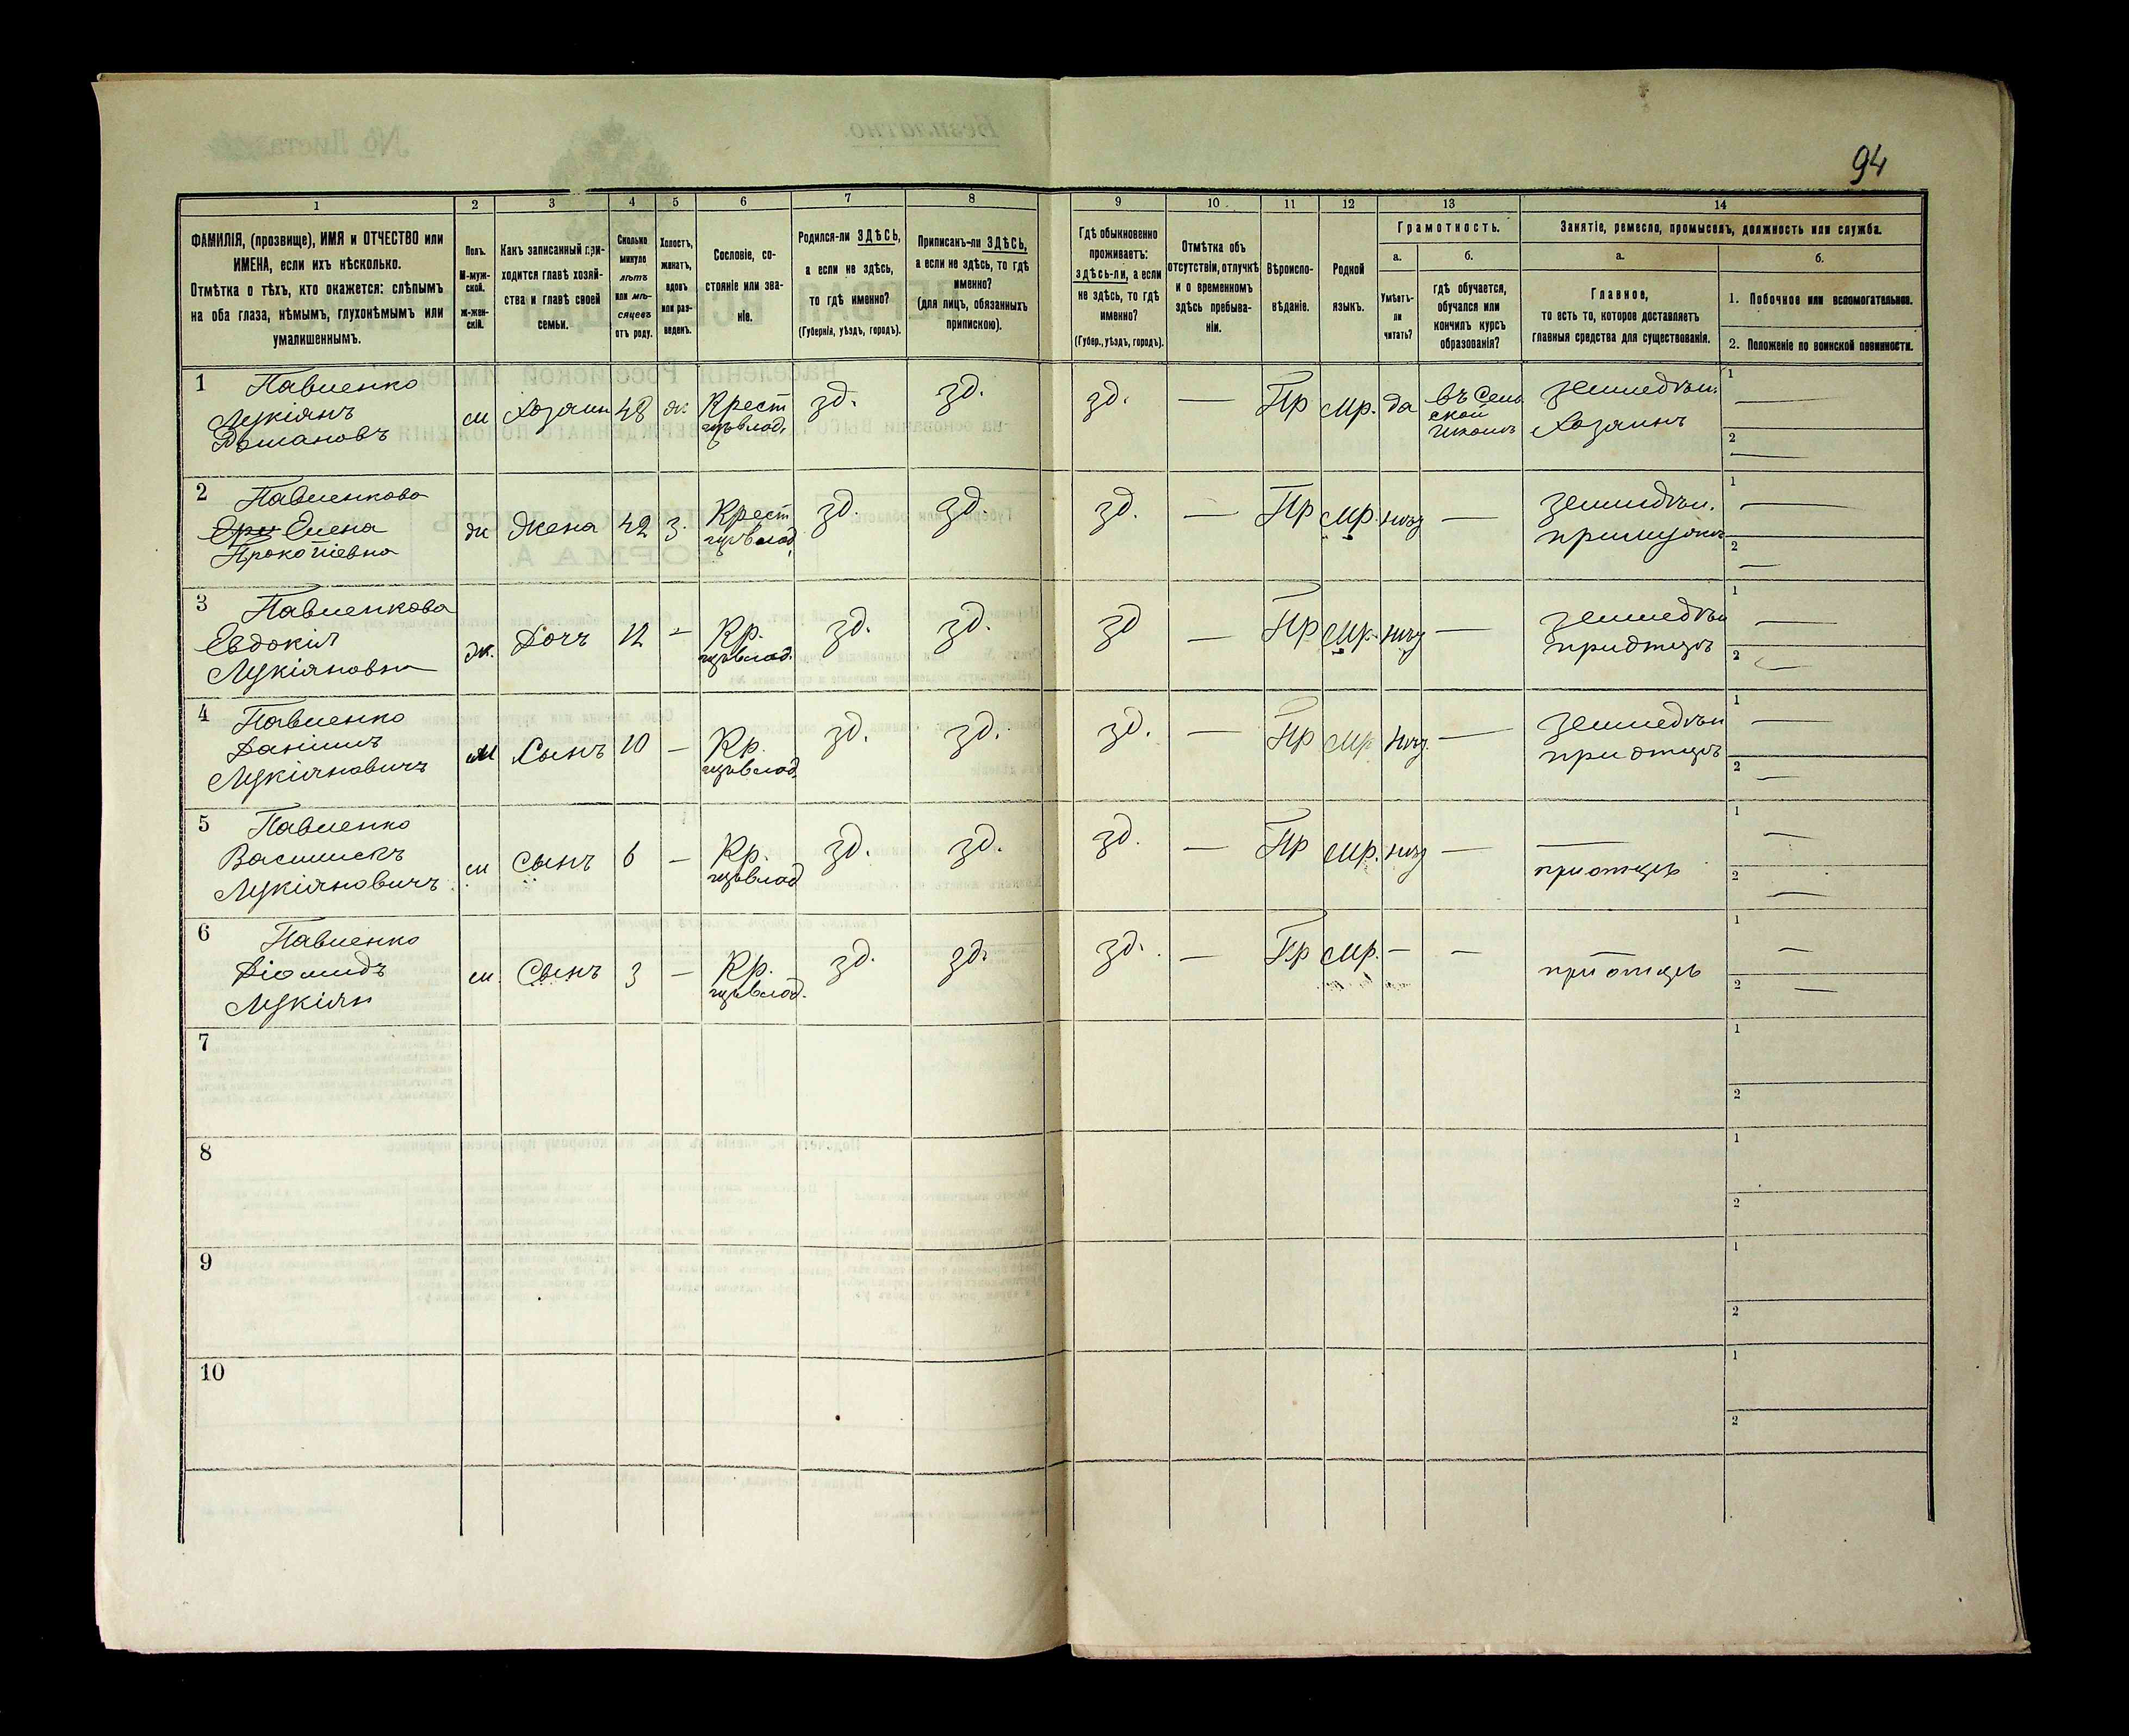 94
1
2
3
4
5
6
7
8
9
10
11
12
13
14
ФАМИЛІЯ, (прозвище), ИМЯ и ОТЧЕСТВО или
ИМЕНА, если ихъ нѣсколько.
Отмѣтка о тѣхъ, кто окажется: слѣпымъ
на оба глаза, нѣмымъ, глухонѣмымъ или
умалишеннымъ.
Полъ.
М-муж-
ской.
ж-жен-
скій.
Какъ записанный при-
ходится главѣ хозяй-
ства и главѣ своей
семьи.
Сколько
минуло
лѣтъ
или мѣ-
сяцевъ
отъ роду.
Холостъ,
женатъ,
вдовъ
или раз-
веденъ.
Сословіе, со-
стояніе или зва-
ніе.
Родился-ли ЗДѢСЬ,
а если не здѣсь,
то гдѣ именно?
(Губернія, уѣздъ, городъ).
Приписанъ-ли ЗДѢСЬ,
а если не здѣсь, то гдѣ
именно?
(для лицъ, обязанныхъ
припискою).
Гдѣ обыкновенно
проживаетъ:
здѣсь-ли, а если
не здѣсь, то гдѣ
именно?
(Губер., уѣздъ, городъ).
Отмѣтка объ
отсутствіи, отлучкѣ
и о временномъ
здѣсь пребыва-
ніи.
Вѣроиспо-
вѣданіе.
Родной
языкъ.
Грамотность.
а.
Умѣетъ-
ли
читать?
б.
гдѣ обучается,
обучался или
кончилъ курсъ
образованія?
Занятіе, ремесло, промыселъ, должность или служба.
а.
Главное,
то есть то, которое доставляетъ
главныя средства для существованія.
б.
1. Побочное или вспомогательное.
2. Положеніе по воинской повинности.
1 Павленко
Лукіянъ
Романовъ
м
Хозяин
48
ж.
Крест
щъвлад.
зд.
зд.
зд.
—
Пр
мр.
да
въ Сель
ской
школѣ
земледѣл.
Хозяинъ
1 —
2 —
2 Павленкова
Елена
Прокопіевна
ж
Жена
42
з.
Крест
щъвлад.
зд.
зд.
зд.
—
Пр
мр.
нѣт
—
земледѣл.
при мужѣ
1 —
2 —
3 Павленкова
Евдокія
Лукіяновна
ж.
Дочъ
12
-
Кр.
щъвлад.
зд.
зд.
зд
—
Пр
мр.
нѣт
—
земледѣл
при отцѣ
1 —
2 —
4 Павленко
Даніилъ
Лукіяновичъ
м
Сынъ
10
—
Кр.
щъвлад.
зд.
зд.
зд.
—
Пр
мр
нѣт
—
земледѣл
при отцѣ
1 —
2 —
5 Павленко
Лукіяновичъ
м
Сынъ
6
—
Кр.
щъвлад
зд.
зд.
зд.
—
Пр
мр.
нѣт
—
—
при отцѣ
1 —
2 —
6 Павленко
Діомидъ
Лукіян
м.
Сынъ
3
—
Кр.
щъвлад.
зд.
зд.
зд.
—
Пр
мр.
—
—
—
при отцѣ
1 —
2 —
7
1
2
8
1
2
9
1
2
10
1
2